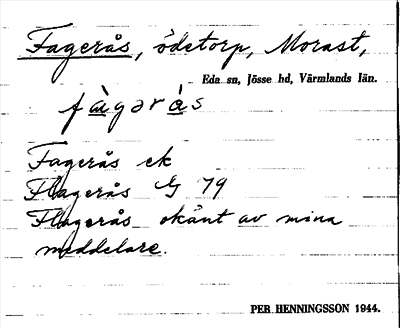 Fagerås, ödetorp, Morast,
Eda sn, Jösse hd, Värmlands län.
fàgərås
Fagerås ek
Flagerås G 79
Flagerås okänt av mina
meddelare.
PER HENNINGSSON 1944.